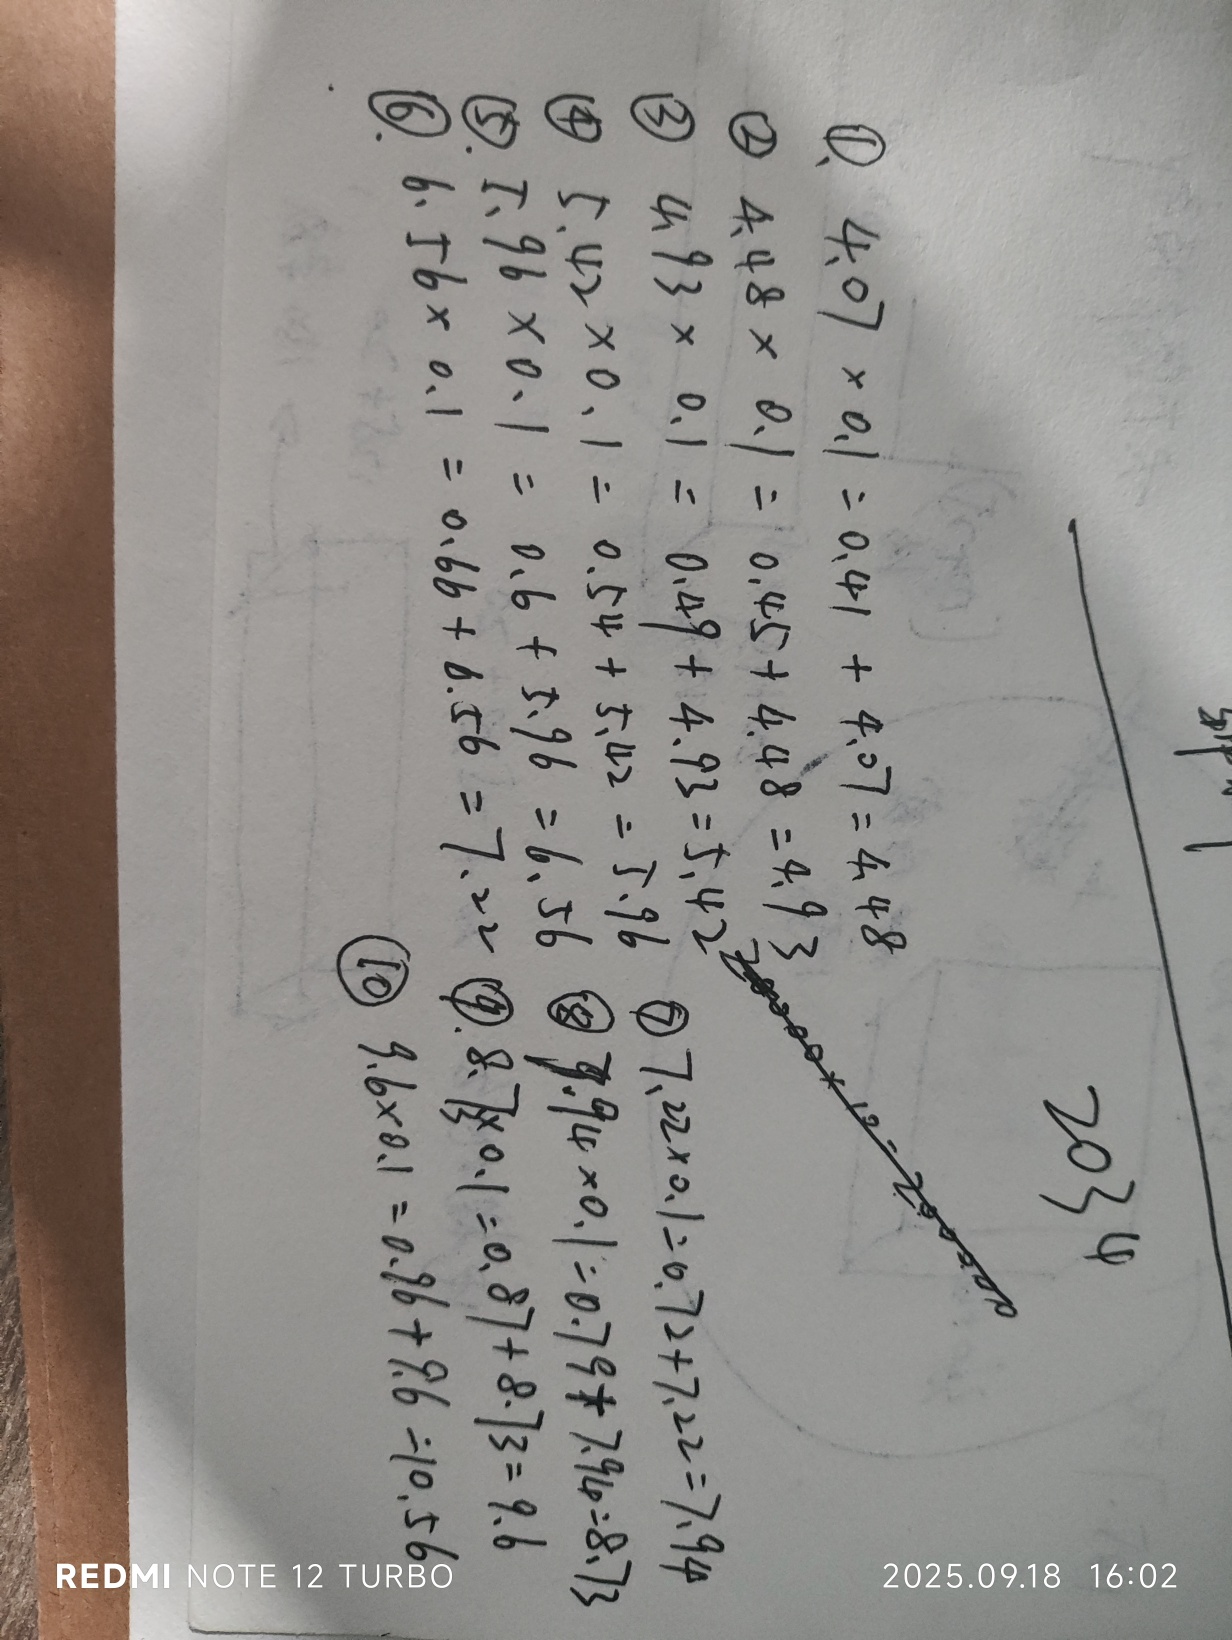 2034
①. 4.07 × 0.1 = 0.41 + 4.07 = 4.48
② 4.48 × 0.1 = 0.45 + 4.48 = 4.93
③ 4.93 × 0.1 = 0.49 + 4.93 = 5.42
④ 5.42 × 0.1 = 0.54 + 5.42 = 5.96
⑤. 5.96 × 0.1 = 0.6 + 5.96 = 6.56
⑥. 6.56 × 0.1 = 0.66 + 6.56 = 7.22
⑦ 7.22 × 0.1 = 0.72 + 7.22 = 7.94
⑧ 7.94 × 0.1 = 0.79 + 7.94 = 8.73
⑨. 8.73 × 0.1 = 0.87 + 8.73 = 9.6
⑩ 9.6 × 0.1 = 0.96 + 9.6 = 10.56
REDMI NOTE 12 TURBO
2025.09.18 16:02